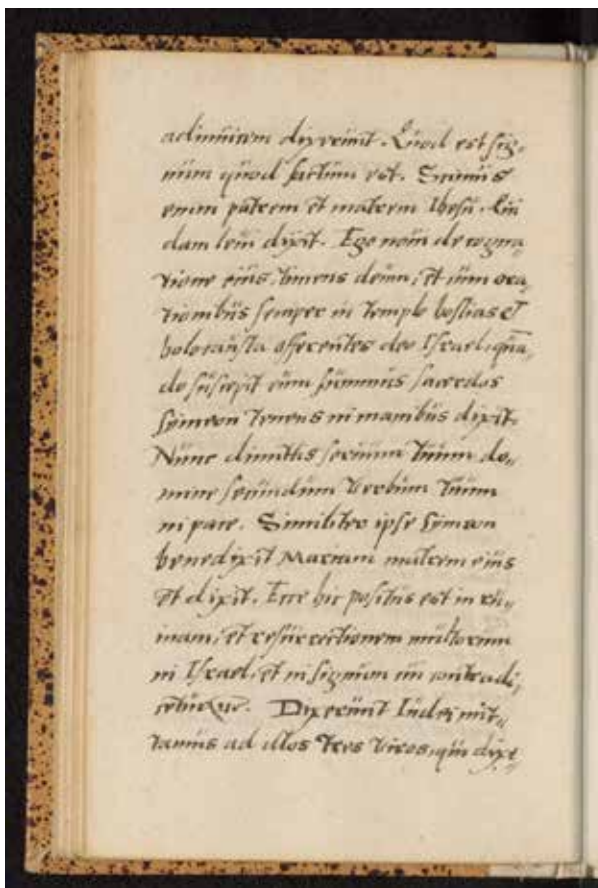 adinuicem dixerunt. Quod est sig„
num quod factum est. Scimus
enim patrem et matrem Ihesu. Qui
dam leui dixit. Ego noui de cogna„
tione eius, timens deum, et cum ora„
tionibus semper in templo hostias et
holocausta offerentes deo Israel, quā„
do suscepit eum summus sacerdos
Symeon tenens in manibus dixit.
Nunc dimittis seruum tuum do„
mine secundum verbum tuum
in pace. Similiter ipse Symeon
benedixit Mariam matrem eius
et dixit. Ecce hic positus est in ru„
inam, et resurrectionem multorum
in Israel, et in signum cui contradi„
cetur. Dixerunt Iudei mit„
tamus ad illos tres viros, qui dixe„